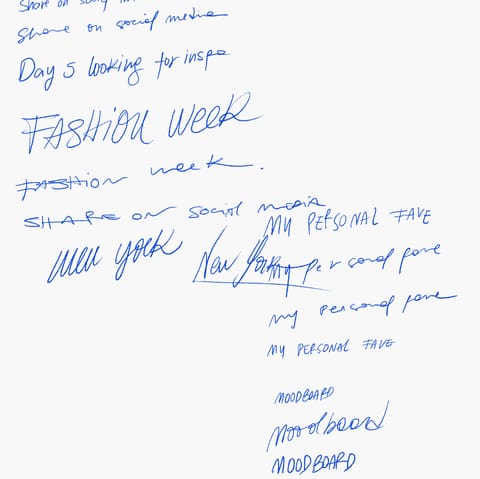 Share on
Share on social media
Day 5 looking for inspo
FASHION WEEK
FASHION week.
SHARE ON social media
MY PERSONAL FAVE
new york
New York
my personal fave
my personal fave
MY PERSONAL FAVE
MOODBOARD
Moodboard
MOODBOARD